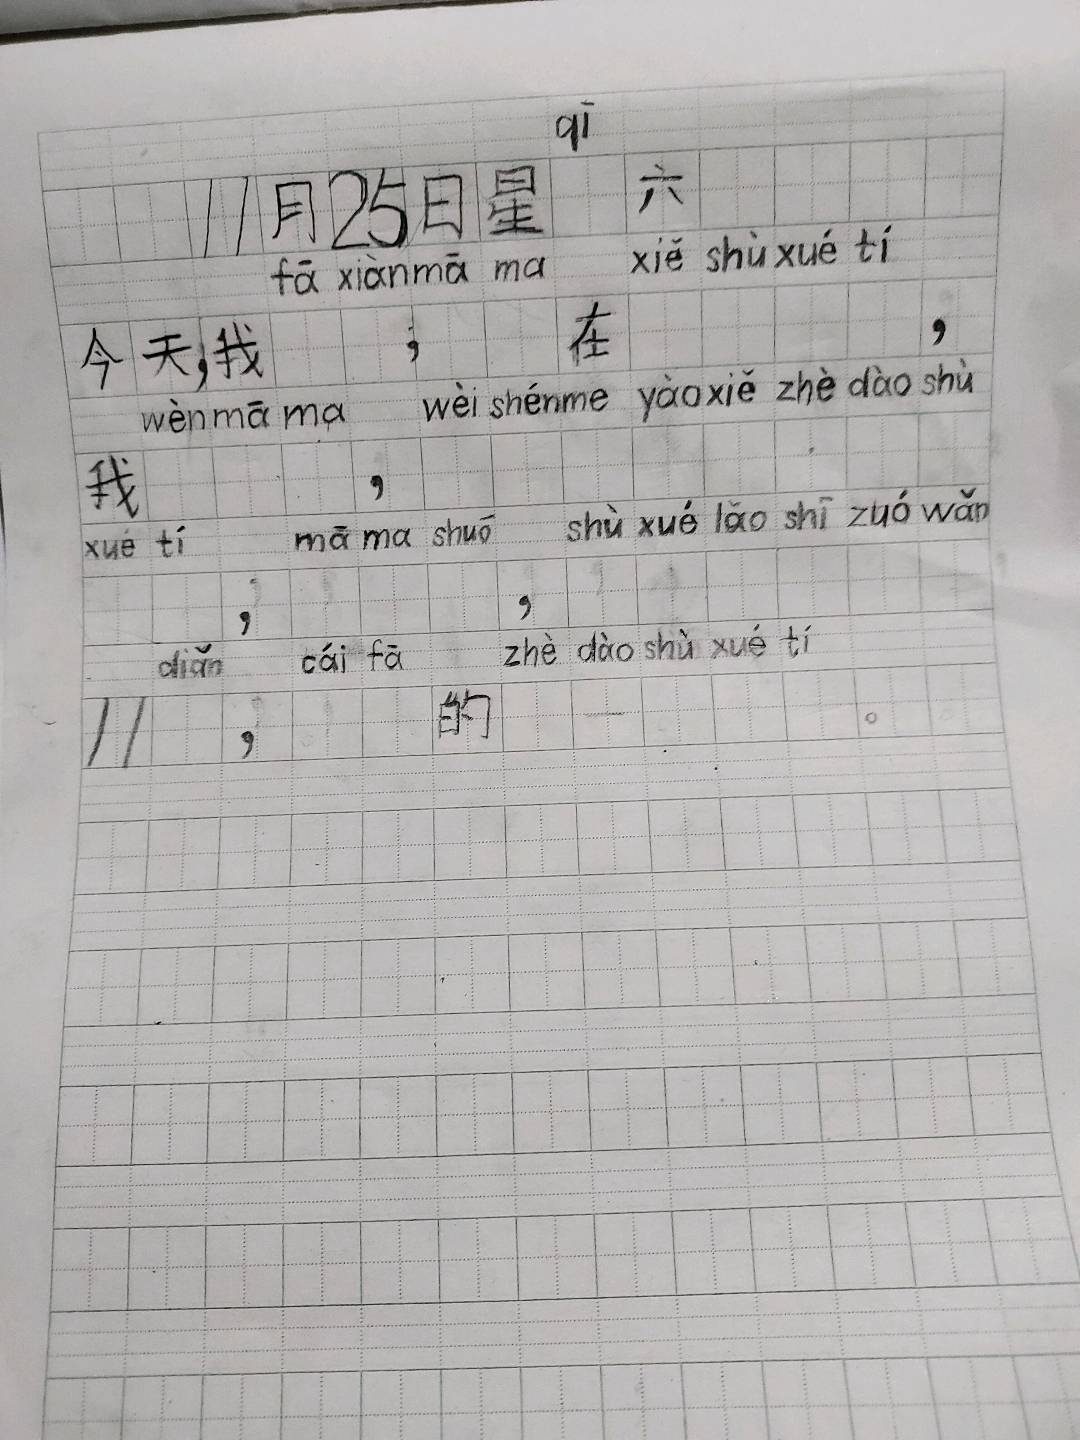 qī
11月25日星 六
fā xiàn mā ma xiě shù xué tí
今天,我 , 在 ,
wèn mā ma wèi shénme yào xiě zhè dào shù
我 ,
xué tí mā ma shuō shù xué lǎo shī zuó wǎn
, ,
diǎn cái fā zhè dào shù xué tí
11 , 的 。